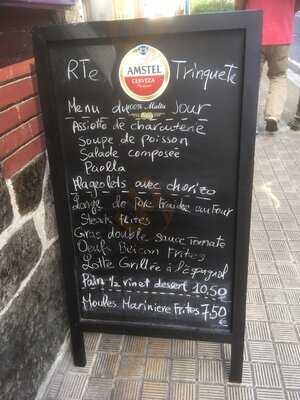 RTe Trinquete
AMSTEL
CERVEZA
100% Malta
Menu du Jour
Assiette de charcuterie
Soupe de poisson
Salade composée
Paella
Flageolets avec chorizo
Longe de Porc Fraiche au Four
Steak frites
Gras double sauce Tomate
Oeufs Beicon Frites
Lotte Grillée à l'espagnol
Pain ½ vin et dessert 10,50
Moules Mariniere Frites 7,50